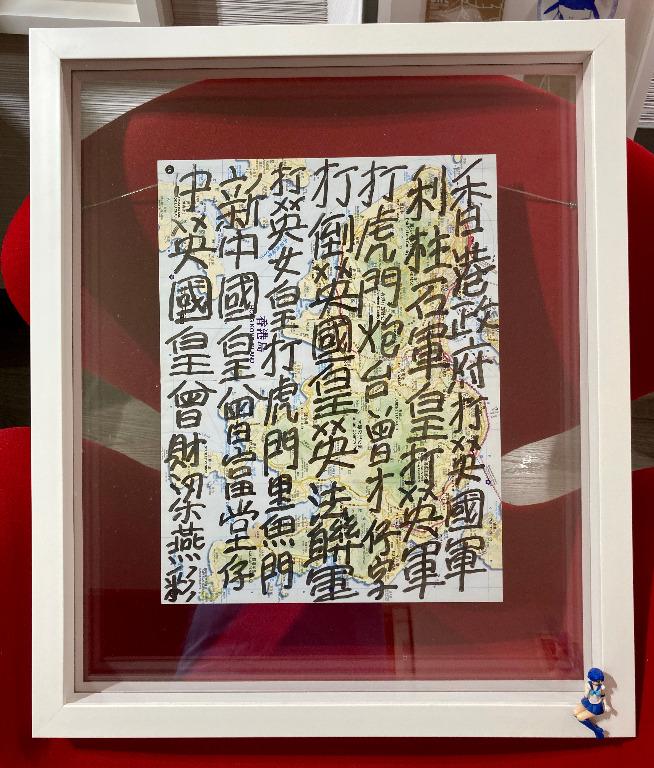 香港政府打英國軍
利柱石軍皇打英軍
打虎門炮台曾才仔字
打倒英國皇英法聯軍
打英女皇打虎門里魚門
新中國皇曾富堂仔
中英國皇曾財梁燕彩
香港島